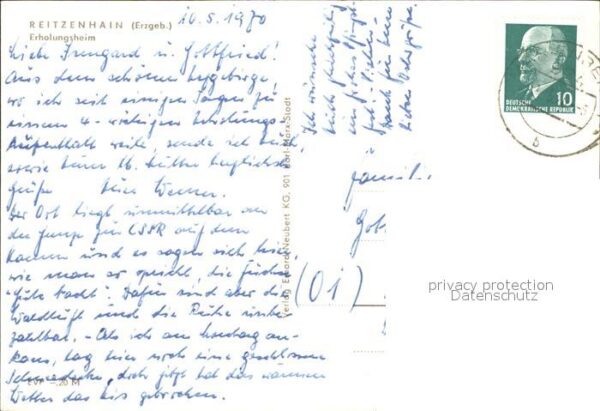 REITZENHAIN (Erzgeb.)
Erholungsheim
16.5.1970
Liebe Irmgard u. Gottfried!
Aus dem schönen Erzgebirge
wo ich seit einigen Tagen zu
einem 4-wöchigen Erholungs-
Aufenthalt weile, sende ich Euch,
sowie Euren lb. Mutter herzlichste
Grüße Euer Werner.
Der Ort liegt unmittelbar an
der Grenze zur CSSR auf dem
Kamm und es sagen sich hier,
wie man so spricht, die Füchse
"Gute Nacht". Dafür sind aber die
Waldluft und die Ruhe unbe-
zahlbar. - Als ich am Montag an-
kam, lag hier noch eine geschlossene
Schneedecke, doch jetzt hat das warme
Wetter das Eis gebrochen.
EVP -,20 M
Ich wünsche
Euch gleichzeitig
ein frohes Pfingst-
fest.
Verlag Erhard Neubert KG, 901 Karl-Marx-Stadt
Famili
Got
(01)
DEUTSCHE
DEMOKRATISCHE REPUBLIK
10
b
privacy protection
Datenschutz